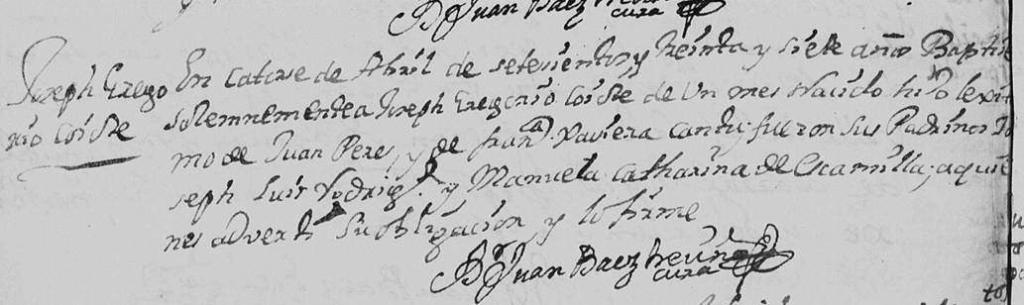 Br Juan Baez treviño
cura
Joseph Grego
rio Coiote
En Catorse de Abril de setesientos, y treinta y siete años Baptise
solemnemente a Joseph Gregorio Coiote de Un mes nacido hijo lexiti
mo de Juan Peres, y de Franca. Xaviera Cantu; fueron sus Padrinos Jo
seph Luis Rodrigs. y Manuela Catharina de Escamilla; aquie
nes adverti su obligacion, y lo firme
Br Juan Baez treviño
cura